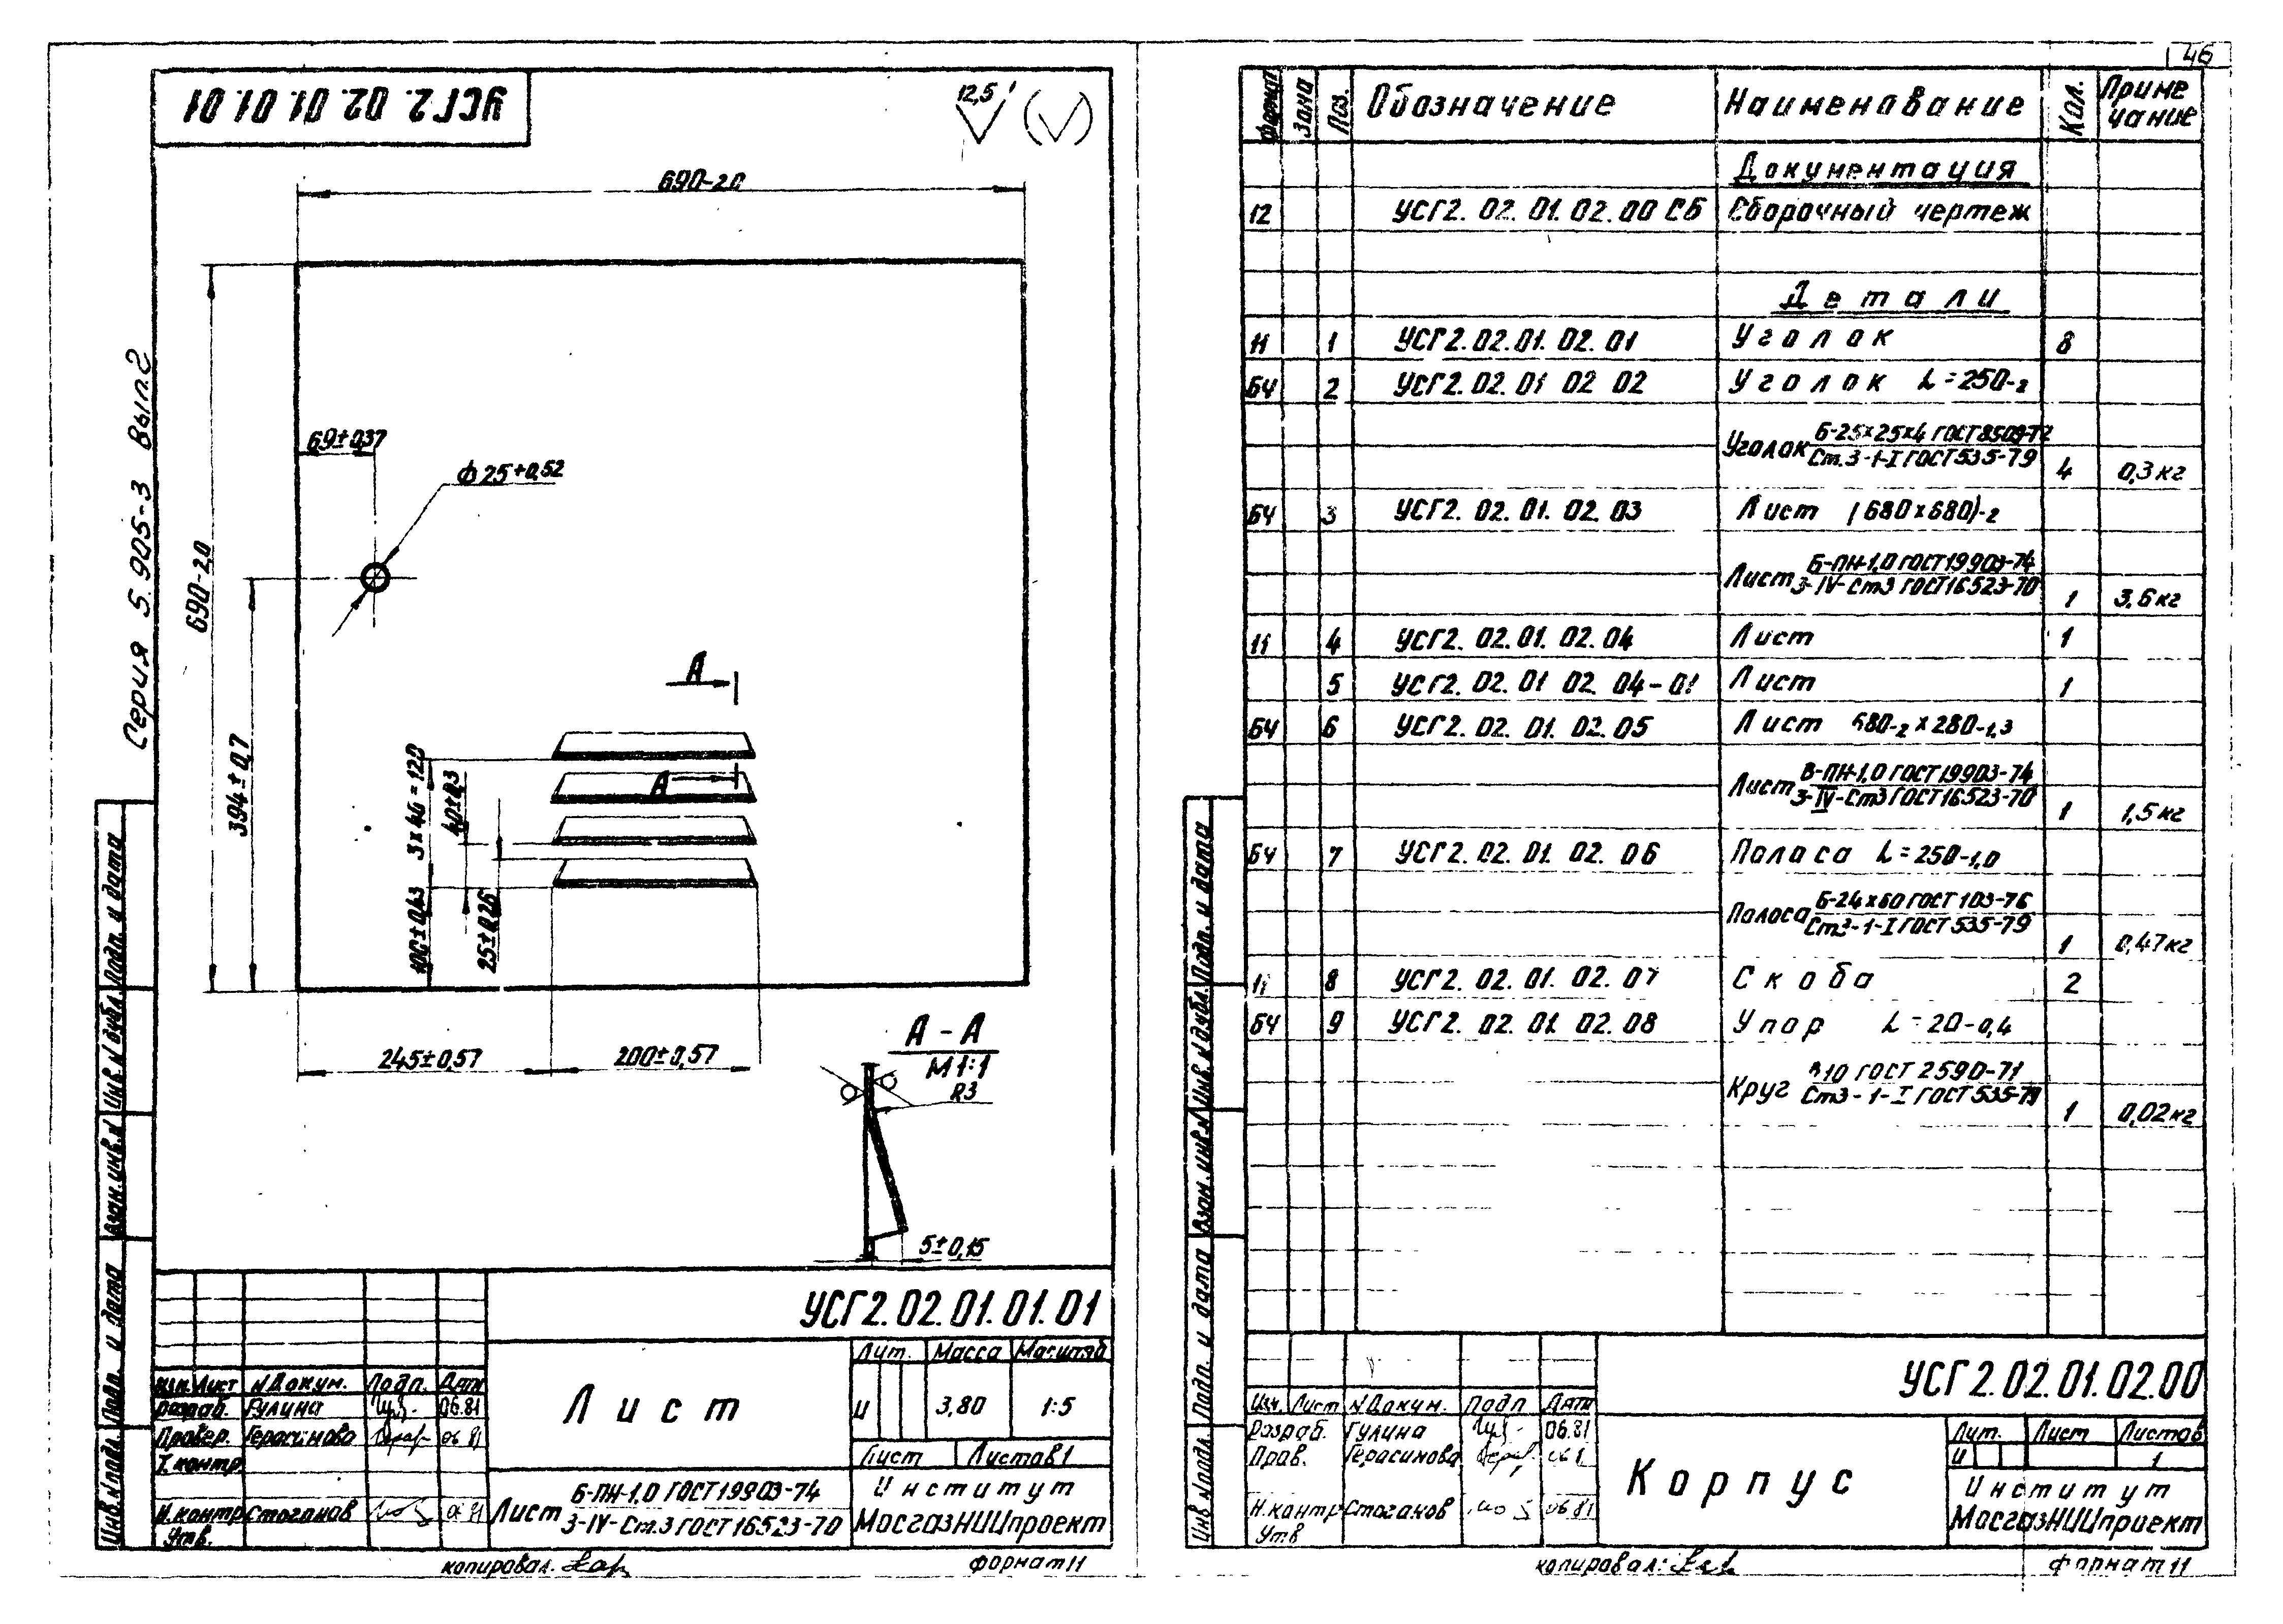 46
УСГ2. 02. 01. 01. 01
12,5
690-2,0
Серия 5.905-3 Вып.2
690-2,0
394±0,7
69±0,37
ф25+0,52
А
А
3×40=120
40±0,3
100±0,43
25±0,26
245±0,57
200±0,57
А-А
М1:1
R3
5±0,15
УСГ2.02.01.01.01
Лит. Масса Масштаб
Лист
И 3,80 1:5
Лист Листов 1
Изм. Лист №Докум. Подп. Дата
Разраб. Гулина 06.81
Провер. Герасимова 06 81
Т. контр.
Н.контр. Стоганов 06 81
Утв.
Лист Б-ПН-1,0 ГОСТ19903-74
3-IV-Ст.3 ГОСТ16523-70
Институт
МосгазНИИпроект
копировал:
формат 11
Подп. и дата
Инв.№дубл.
Взам.инв.№
Подп. и дата
Инв.№подл.
Формат Зона Поз. Обозначение Наименование Кол. Примечание
Документация
12 УСГ2. 02. 01. 02. 00 СБ Сборочный чертеж
Детали
11 1 УСГ2. 02. 01. 02. 01 Уголок 8
БЧ 2 УСГ2. 02. 01 02 02 Уголок L=250-2
Уголок Б-25×25×4 ГОСТ8509-72
Ст.3-1-I ГОСТ535-79 4 0,3 кг
БЧ 3 УСГ2. 02. 01. 02. 03 Лист (680×680)-2
Лист Б-ПН-1,0 ГОСТ19903-74
3-IV-Ст3 ГОСТ16523-70 1 3,6 кг
11 4 УСГ2. 02. 01. 02. 04 Лист 1
5 УСГ2. 02. 01 02. 04-01 Лист 1
БЧ 6 УСГ2. 02. 01. 02. 05 Лист 680-2×280-1,3
Лист Б-ПН-1,0 ГОСТ19903-74
3-IV-Ст3 ГОСТ16523-70 1 1,5 кг
БЧ 7 УСГ2. 02. 01. 02. 06 Полоса L=250-1,0
Полоса Б-24×60 ГОСТ 103-76
Ст3-1-I ГОСТ 535-79 1 0,47 кг
11 8 УСГ2. 02. 01. 02. 07 Скоба 2
БЧ 9 УСГ2. 02. 01. 02. 08 Упор L=20-0,4
Круг В10 ГОСТ 2590-71
Ст3-1-I ГОСТ 535-79 1 0,02 кг
УСГ2.02.01.02.00
Изм. Лист №Докум. Подп Дата
Разраб. Гулина 06.81
Пров. Герасимова
Н.контр Стоганов 06 81
Утв
Корпус
Лит. Лист Листов
И 1
Институт
МосгазНИИпроект
копировал:
формат 11
Подп. и дата
Инв.№дубл.
Взам.инв.№
Подп. и дата
Инв №подл.